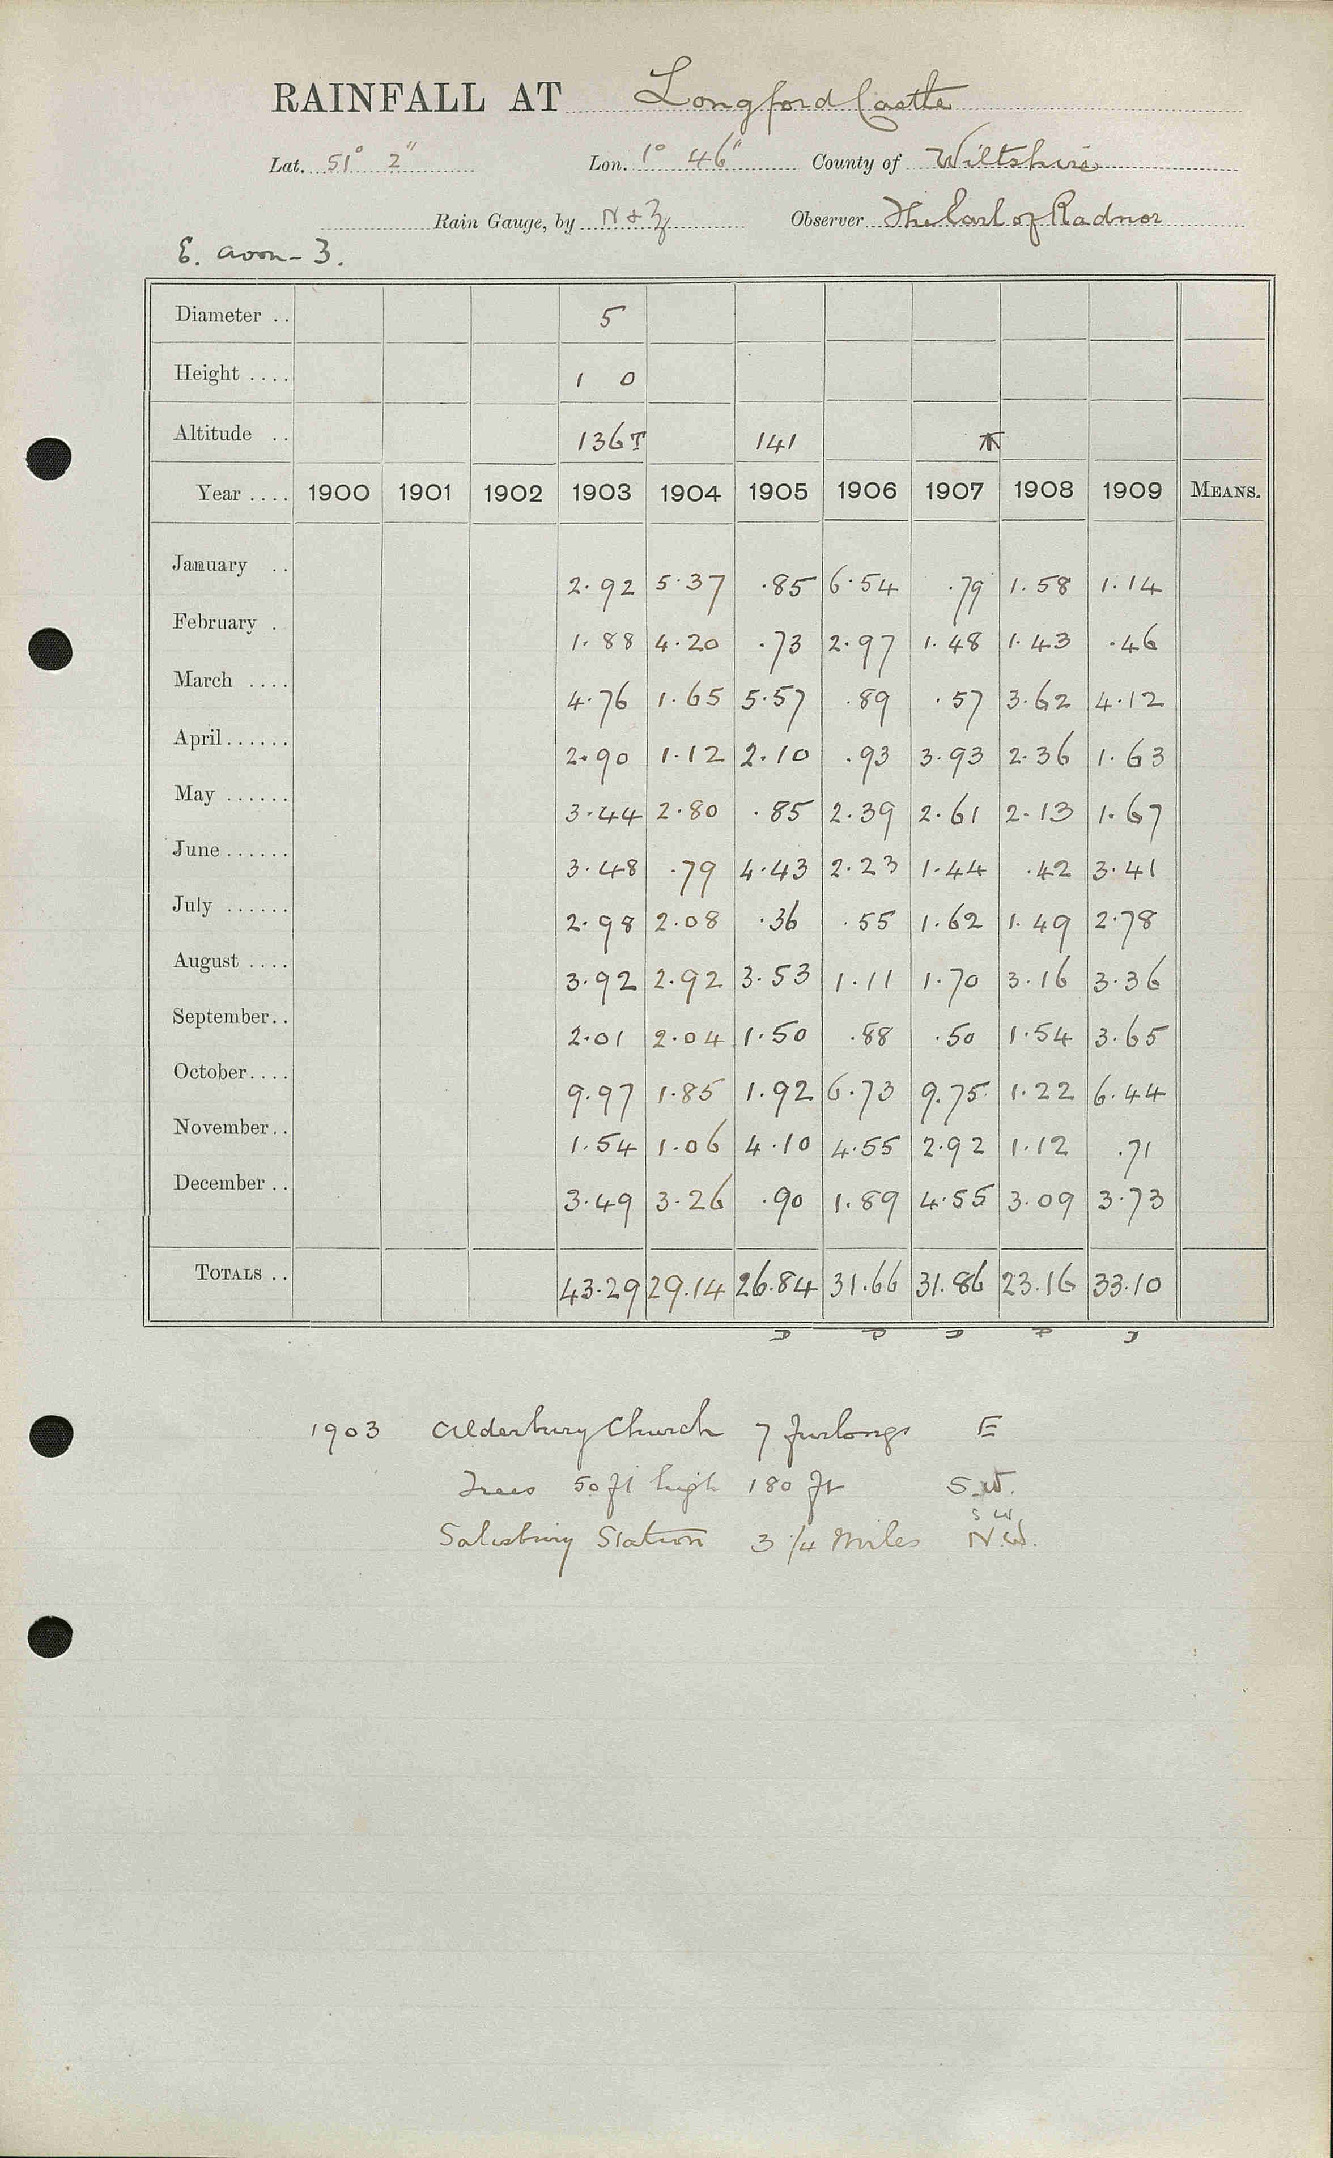 RAINFALL AT Longford Castle
Lat. 51° 2" Lon. 1° 46" County of Wiltshire
Rain Gauge, by N & Z Observer The Earl of Radnor
E. Avon - 3.
Diameter .. 5
Height .... 1 0
Altitude .. 136T 141 T
Year .... 1900 1901 1902 1903 1904 1905 1906 1907 1908 1909 MEANS.
January .. 2.92 5.37 .85 6.54 .79 1.58 1.14
February . 1.88 4.20 .73 2.97 1.48 1.43 .46
March .... 4.76 1.65 5.57 .89 .57 3.62 4.12
April...... 2.90 1.12 2.10 .93 3.93 2.36 1.63
May ...... 3.44 2.80 .85 2.39 2.61 2.13 1.67
June...... 3.48 .79 4.43 2.23 1.44 .42 3.41
July ...... 2.98 2.08 .36 .55 1.62 1.49 2.78
August .... 3.92 2.92 3.53 1.11 1.70 3.16 3.36
September.. 2.01 2.04 1.50 .88 .50 1.54 3.65
October.... 9.97 1.85 1.92 6.73 9.75 1.22 6.44
November.. 1.54 1.06 4.10 4.55 2.92 1.12 .71
December .. 3.49 3.26 .90 1.89 4.55 3.09 3.73
TOTALS .. 43.29 29.14 26.84 31.66 31.86 23.16 33.10
1903 Alderbury Church 7 furlongs E
Trees 50 ft high 180 ft S.W.
S W
Salisbury Station 3 1/4 Miles N.W.